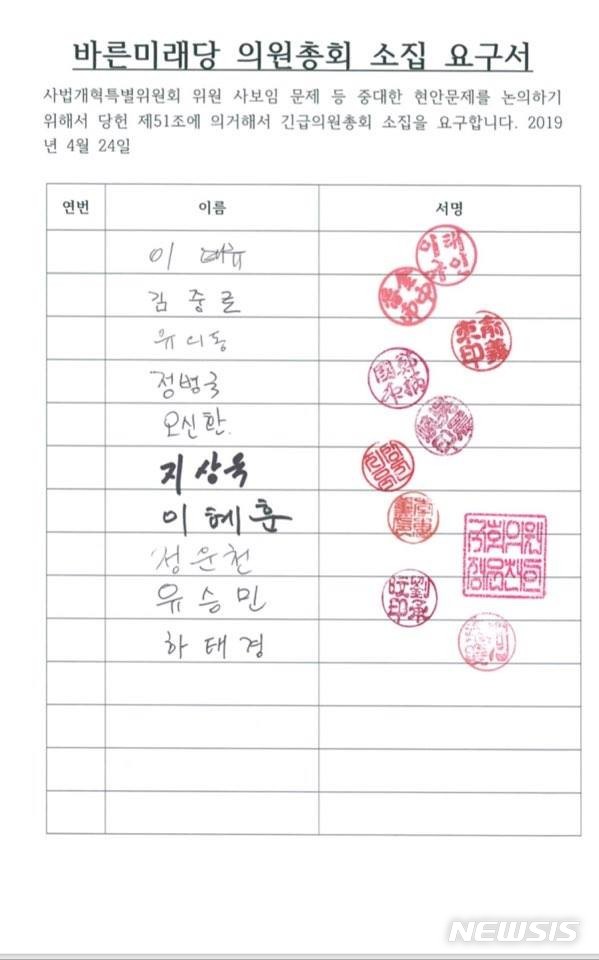 바른미래당 의원총회 소집 요구서
사법개혁특별위원회 위원 사보임 문제 등 중대한 현안문제를 논의하기
위해서 당헌 제51조에 의거해서 긴급의원총회 소집을 요구합니다. 2019
년 4월 24일
연번 이름 서명
이
김중로
유의동
정병국
오신환
지상욱
이혜훈
정운천
유승민
하태경
NEWSIS